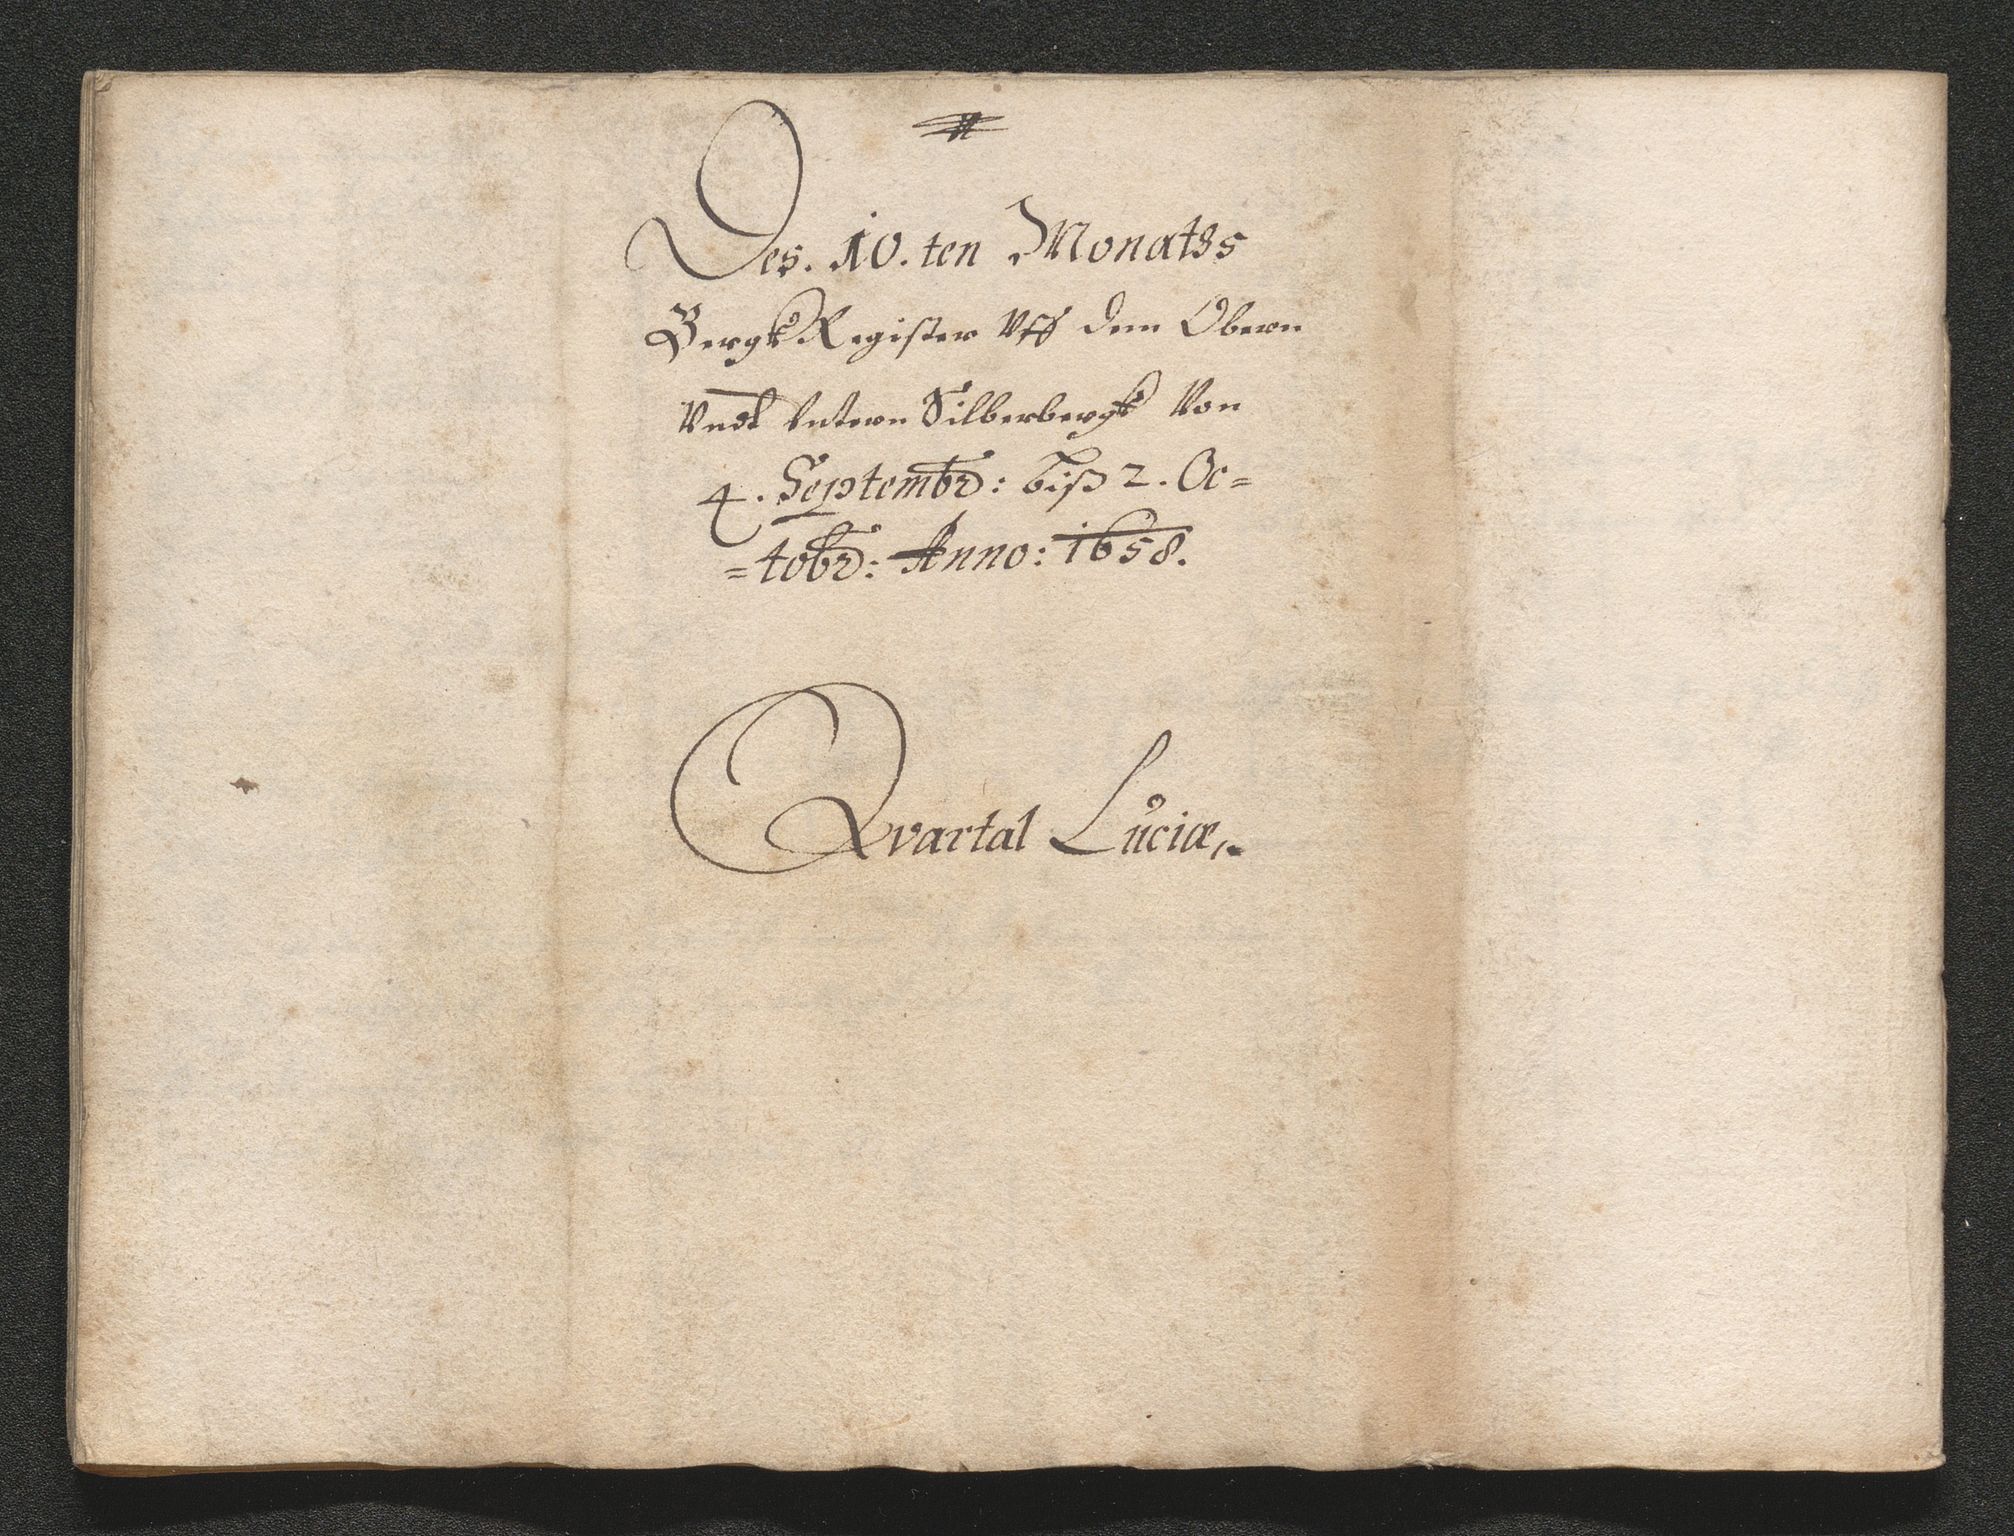 Des. 10. ten Monatßs
BergkRegister Vff dem Obern
Vndt Vntern Silberbergk Von
4. Septembr: biß 2. Oc=
=tobr: Anno: 1658.
Qvartal Luciæ